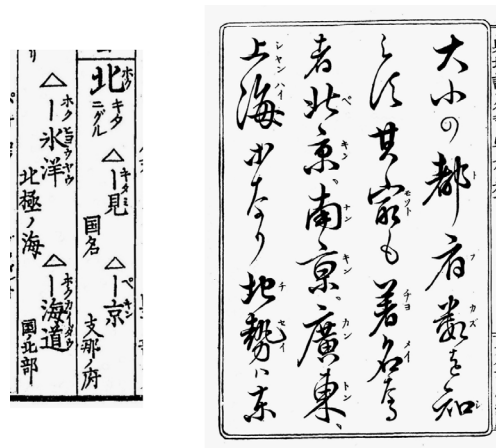 北 ホク キタ ニグル △ー見 キタミ 国名 △ー京 ペキン 支那ノ府
△ー氷洋 北極ノ海 △ー海道 ホクカイダウ 国ノ北部
大小の都府数を知
らす其最も著名なる
者北京、南京、廣東、
上海等なり地勢ハ東